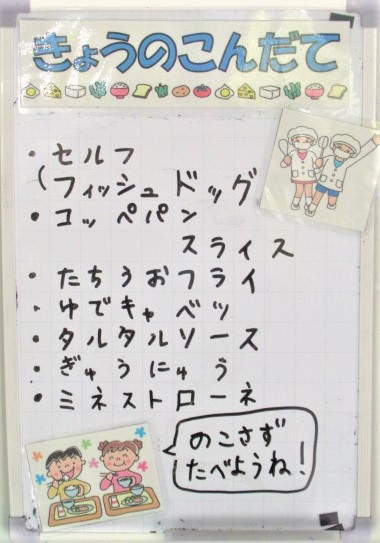 きょうのこんだて
・セルフ
(フィッシュドッグ
・コッペパン
スライス
・たちうおフライ
・ゆでキャベツ
・タルタルソース
・ぎゅうにゅう
・ミネストローネ
のこさず
たべようね!